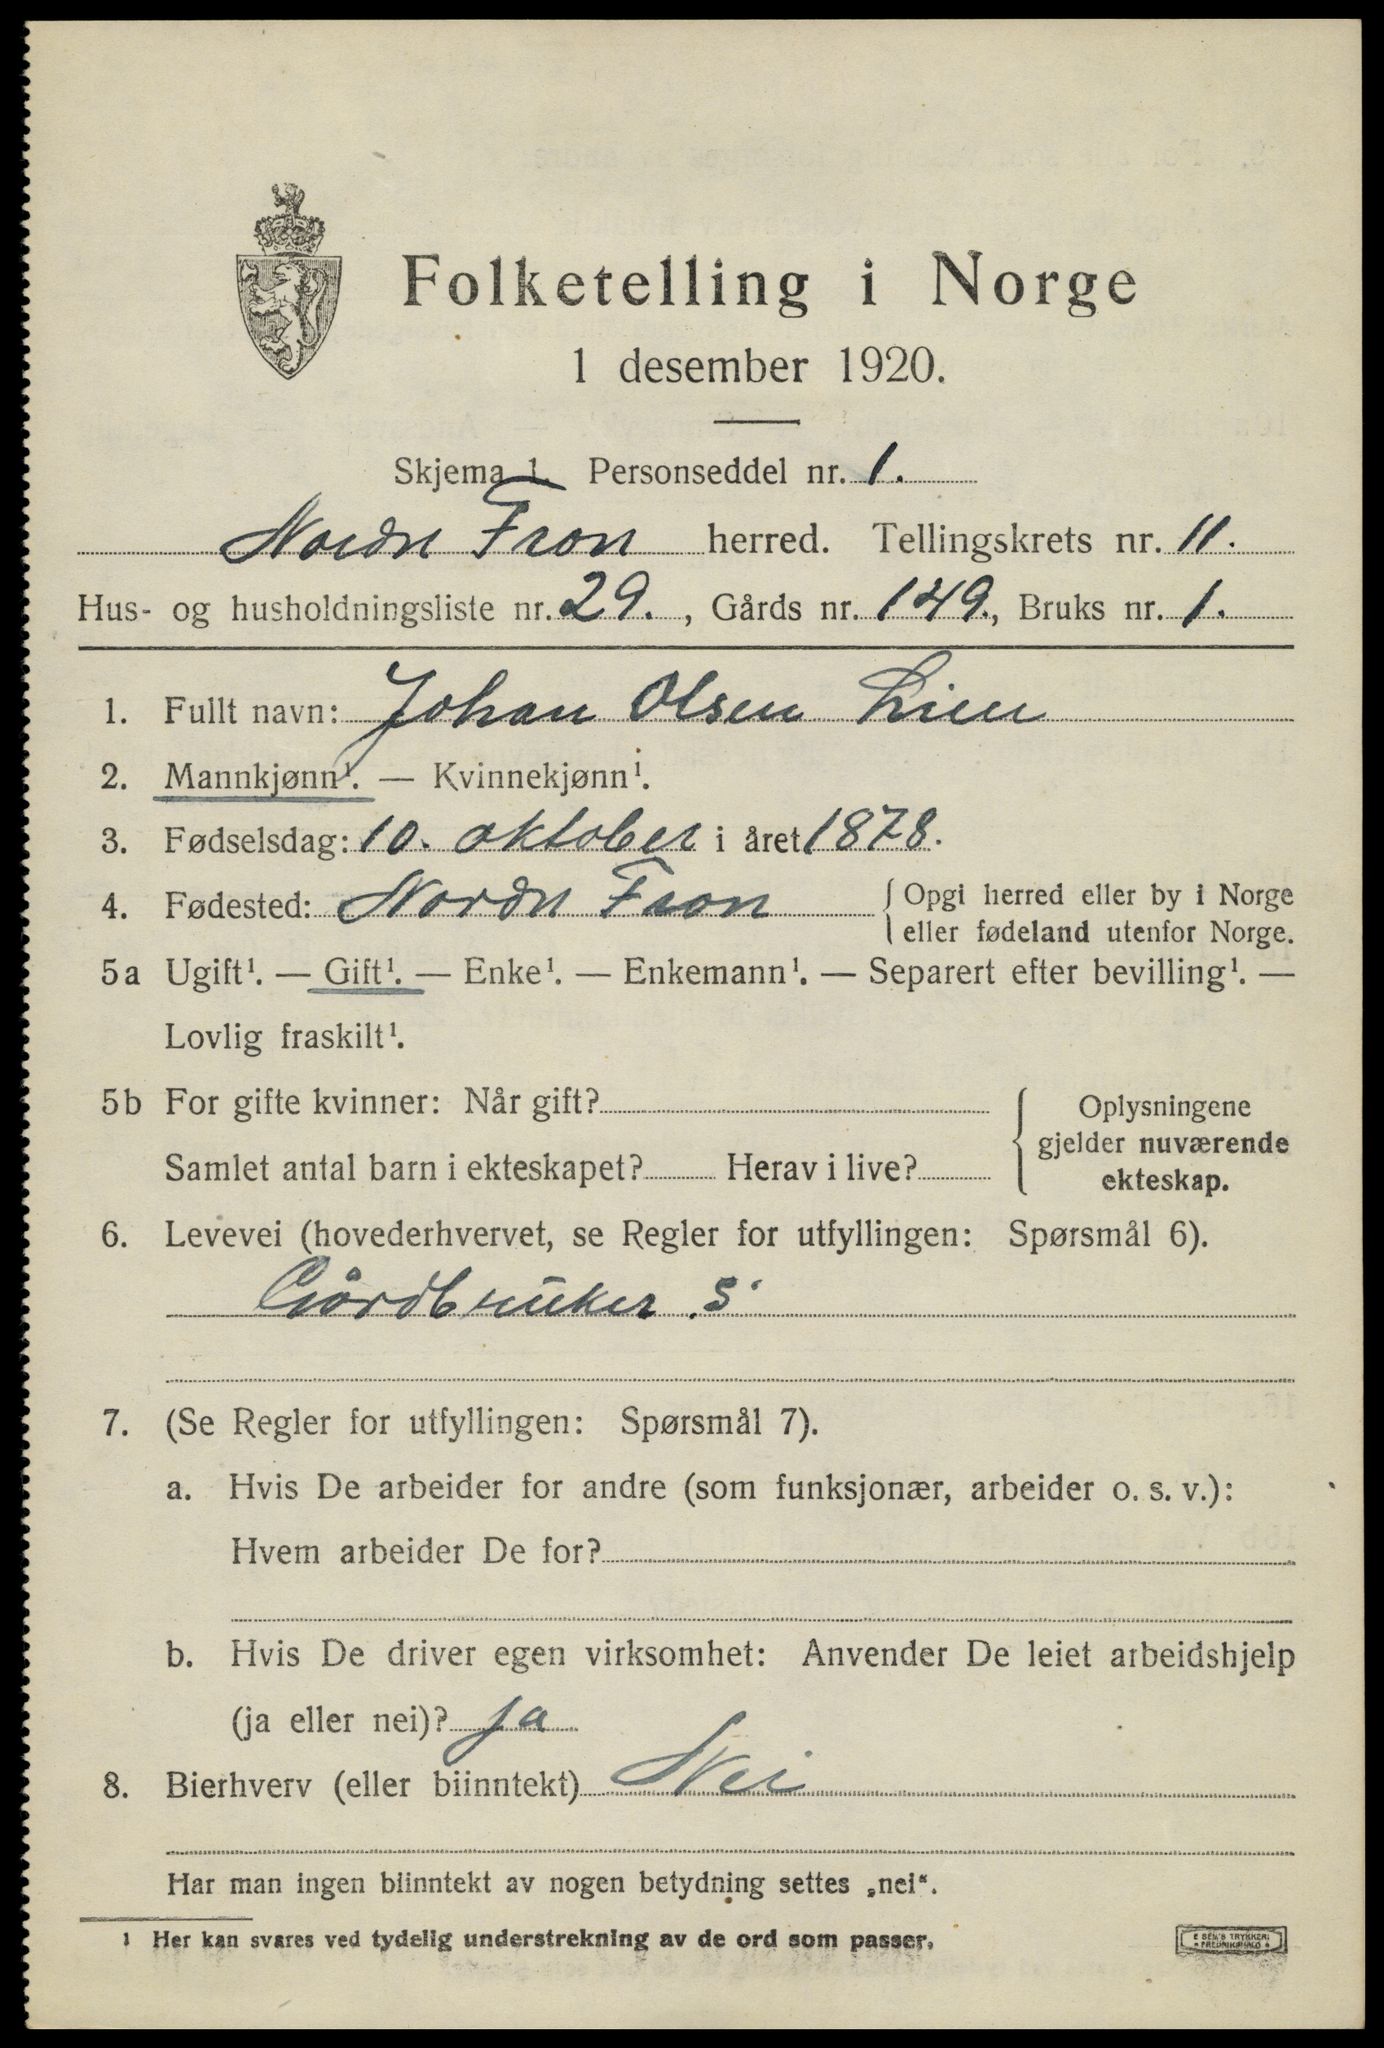 Folketelling i Norge
1 desember 1920.
Skjema 1. Personseddel nr. 1.
Nordre Fron herred. Tellingskrets nr. 11.
Hus- og husholdningsliste nr. 29., Gårds nr. 149., Bruks nr. 1.
1. Fullt navn: Johan Olsen Lien
2. Mannkjønn¹. — Kvinnekjønn¹.
3. Fødselsdag: 10. oktober i året 1878.
4. Fødested: Nordre Fron { Opgi herred eller by i Norge
eller fødeland utenfor Norge.
5a Ugift¹. — Gift¹. — Enke¹. — Enkemann¹. — Separert efter bevilling¹. —
Lovlig fraskilt¹.
5b For gifte kvinner: Når gift? { Oplysningene
gjelder nuværende
Samlet antal barn i ekteskapet? Herav i live? ekteskap.
6. Levevei (hovederhvervet, se Regler for utfyllingen: Spørsmål 6).
Gårdbruker S
7. (Se Regler for utfyllingen: Spørsmål 7).
a. Hvis De arbeider for andre (som funksjonær, arbeider o. s. v.):
Hvem arbeider De for?
b. Hvis De driver egen virksomhet: Anvender De leiet arbeidshjelp
(ja eller nei)? ja
8. Bierhverv (eller biinntekt) Nei
Har man ingen biinntekt av nogen betydning settes „nei“.
1 Her kan svares ved tydelig understrekning av de ord som passer.
E SEM'S TRYKKERI
FREDRIKSHALD